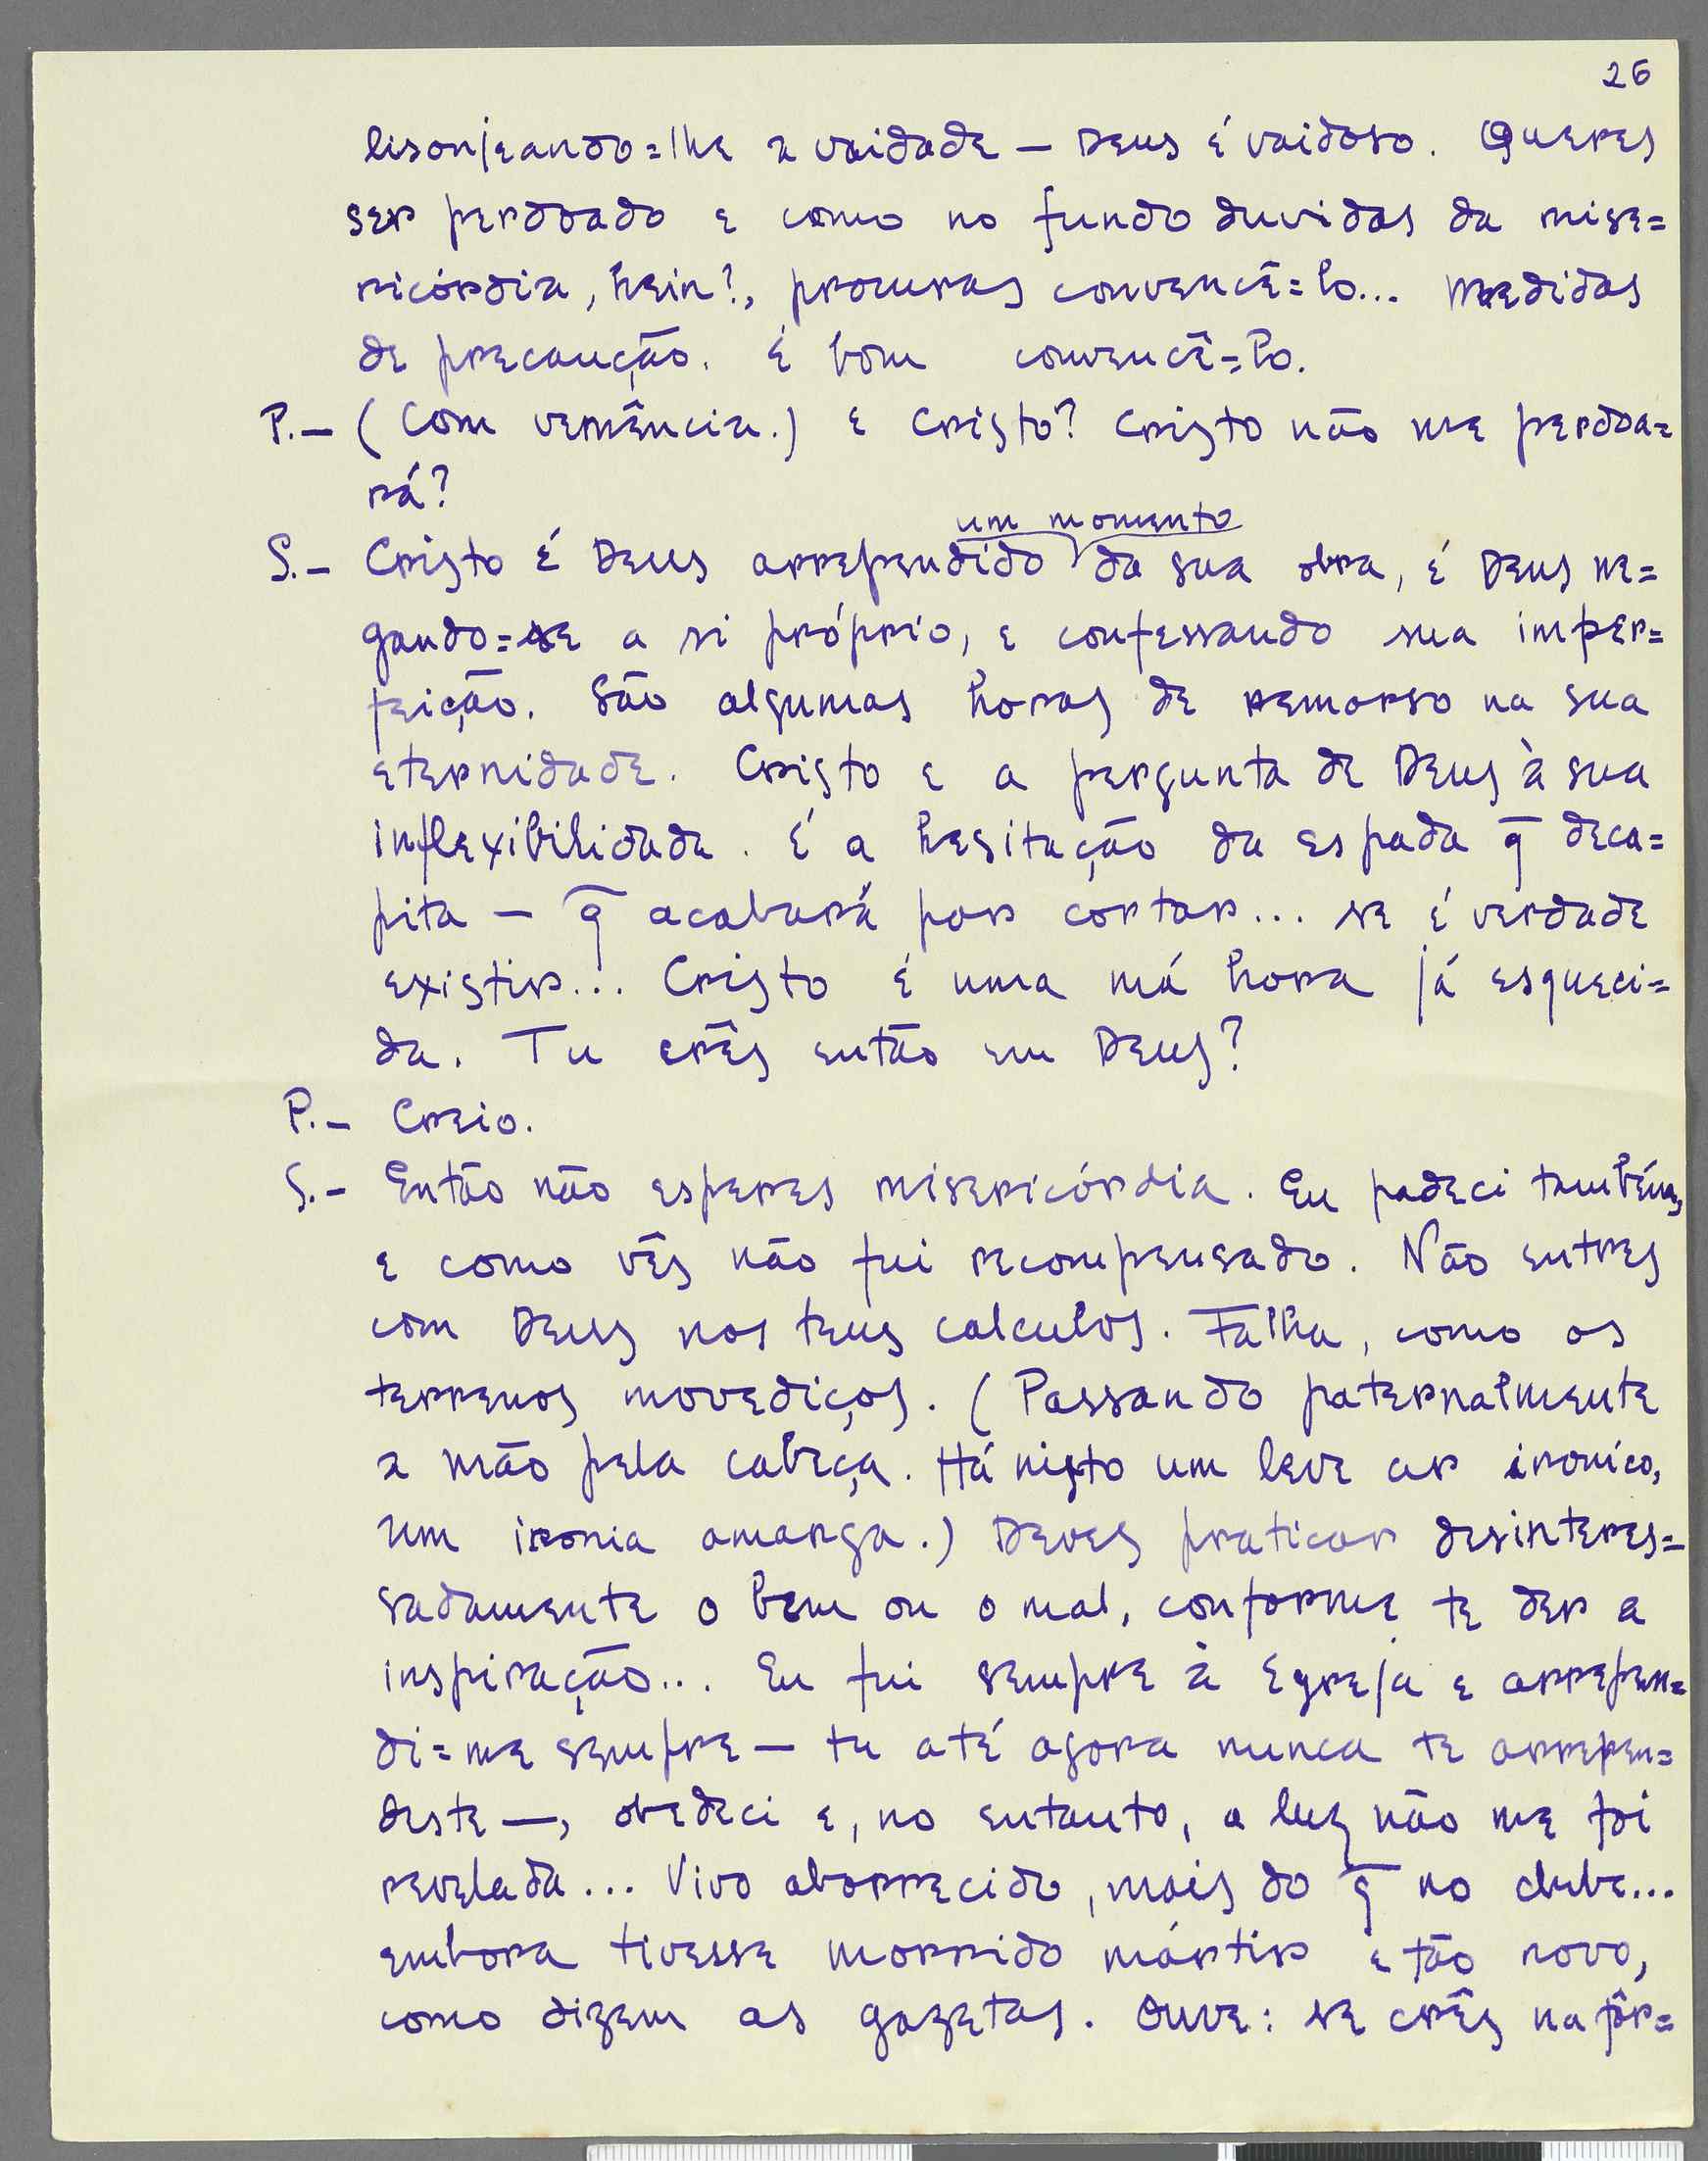 26
lisonjeando=lhe a vaidade — Deus é vaidoso. Queres
ser perdoado e como no fundo duvidas da mise=
ricórdia, hein?, procuras convencê=lo... Medidas
de precaução. É bom convencê=lo.
P.— (Com vemência.) E Cristo? Cristo não me perdoa=
rá?
um momento
S.— Cristo é Deus arrependido da sua obra, é Deus ne=
gando=se a si próprio, e confessando sua imper=
feição. São algumas horas de remorso na sua
eternidade. Cristo e a pergunta de Deus à sua
inflexibilidade. É a hesitação da espada q̄ deca=
pita — q̄ acabará por cortar... se é verdade
existir... Cristo é uma má hora já esqueci=
da. Tu crês então em Deus?
P.— Creio.
S.— Então não esperes misericórdia. Eu padeci também,
e como vês não fui recompensado. Não entres
com Deus nos teus calculos. Falha, como os
terrenos movediços. (Passando paternalmente
a mão pela cabeça. Há nisto um leve ar ironico,
um ironia amarga.) Deves praticar desinteres=
sadamente o bem ou o mal, conforme te der a
inspiração... Eu fui sempre à Egreja e arrepen=
di=me sempre — tu até agora nunca te arrepen=
deste —, obedeci e, no entanto, a luz não me foi
revelada... Vivo aborrecido, mais do q̄ no clube...
embora tivesse morrido mártir e tão novo,
como dizem as gazetas. Ouve: se crês na fôr=